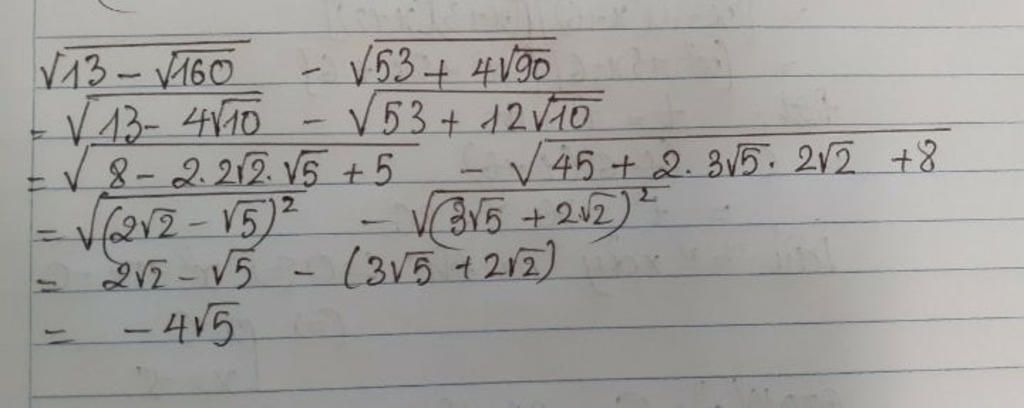 √(13 − √160) − √(53 + 4√90)
= √(13 − 4√10) − √(53 + 12√10)
= √(8 − 2.2√2.√5 + 5) − √(45 + 2.3√5.2√2 + 8)
= √((2√2 − √5)²) − √((3√5 + 2√2)²)
= 2√2 − √5 − (3√5 + 2√2)
= −4√5